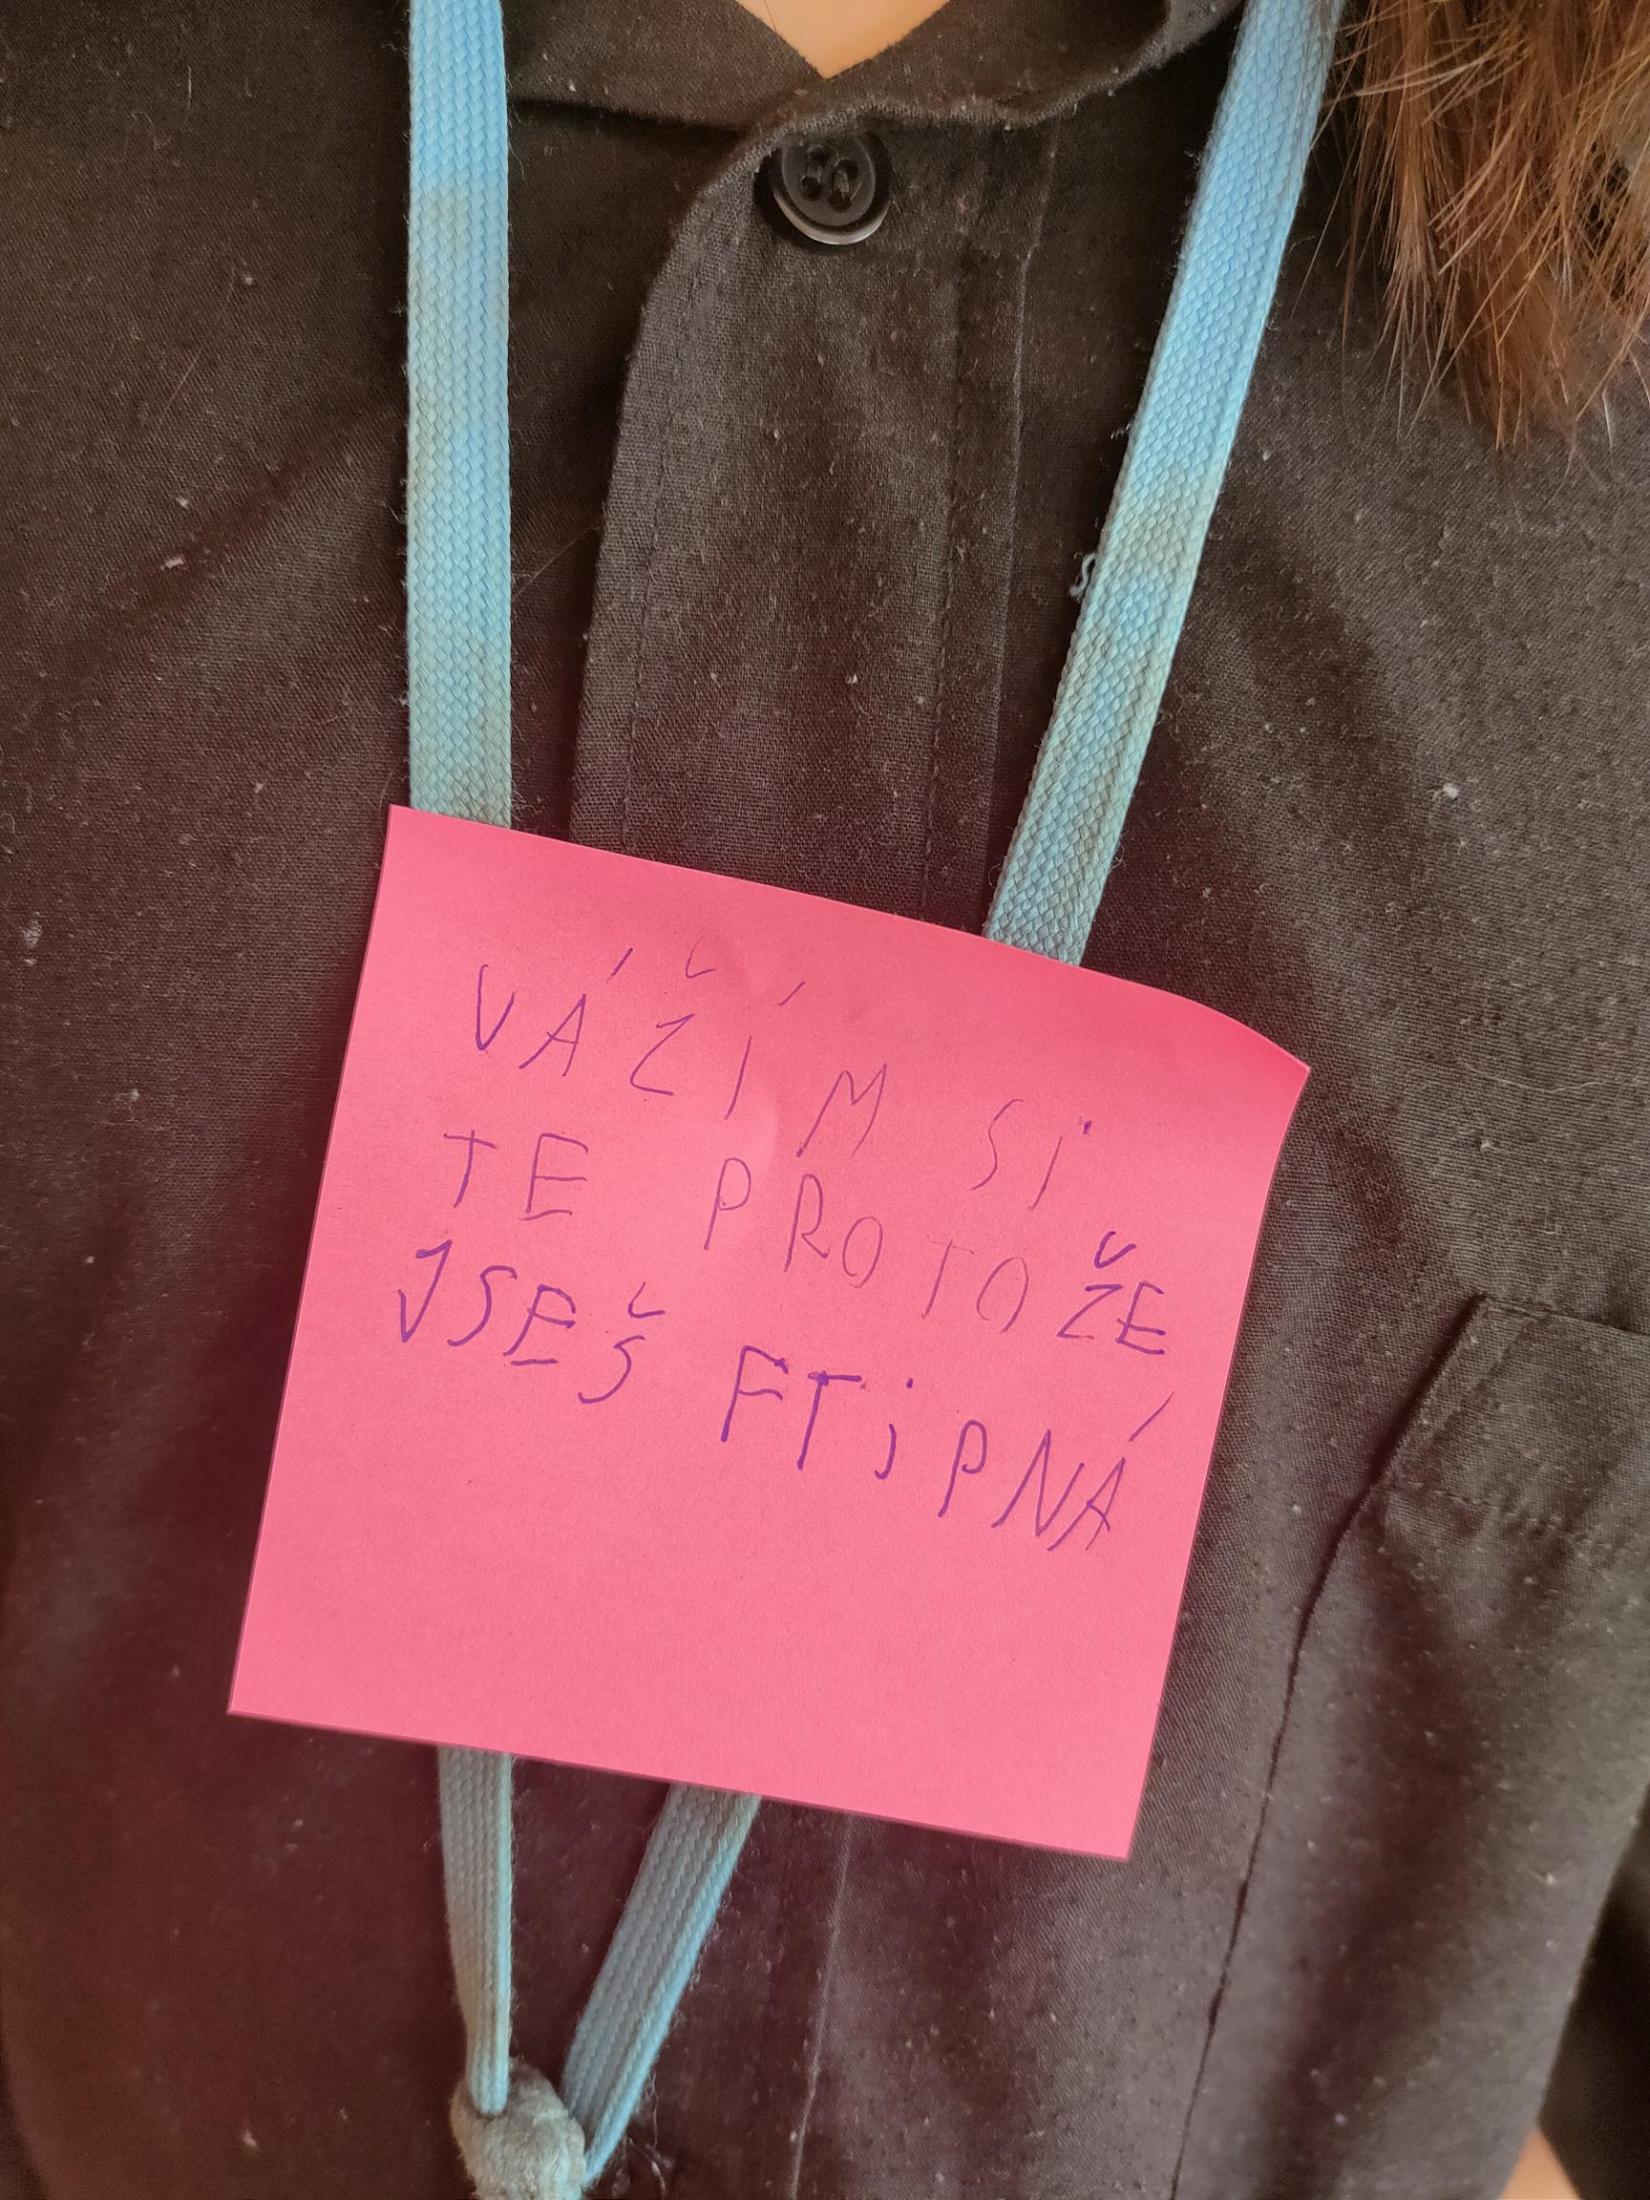 VÁŽÍM Si
TE PROTOŽE
JSEŠ FTiPNÁ